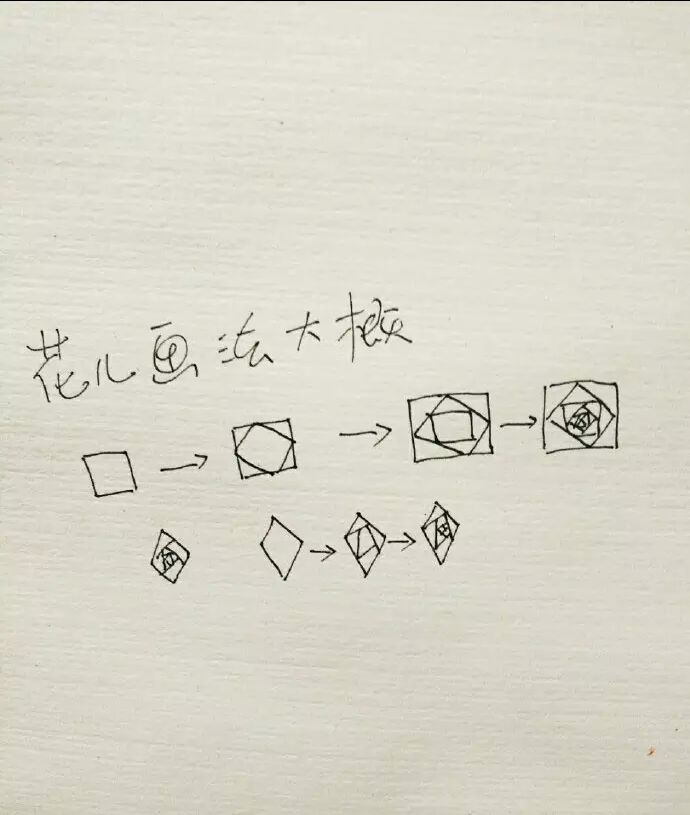 花儿画法大概